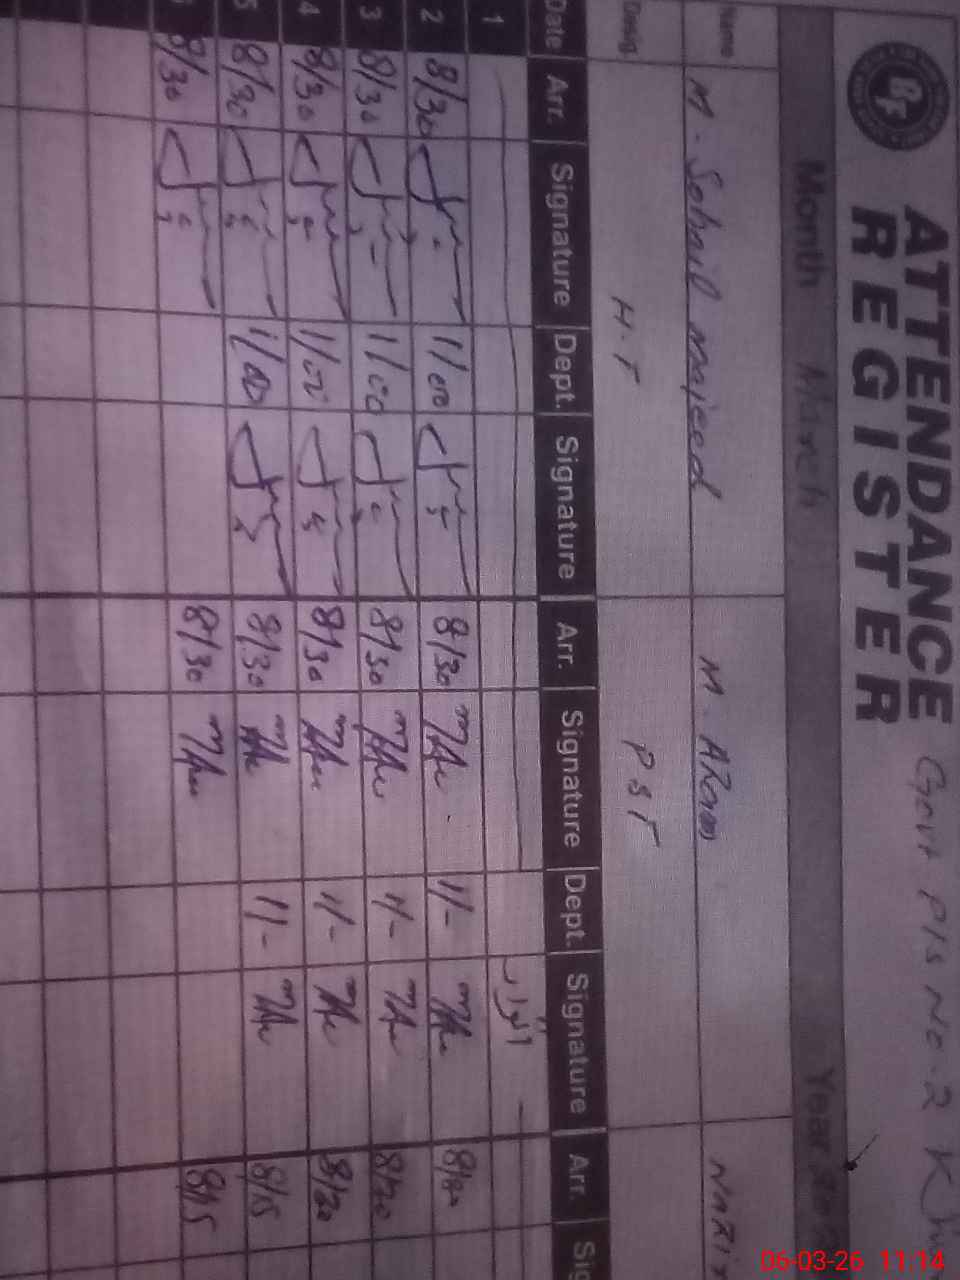 ATTENDANCE REGISTER
Govt P/s No-2
Month March Year
Name M. Sohail majeed M. Azam
Desig. H.T PST
Date Arr. Signature Dept. Signature Arr. Signature Dept. Signature Arr.
1 اتوار
2 8/30 1/00 8/30 1/-
3 8/30 1/00 8/30 1/- 8/20
4 8/30 1/00 8/30 1/- 8/20
5 8/30 1/00 8/30 1/- 8/15
8/30 8/30 8/15
06-03-26 11:14